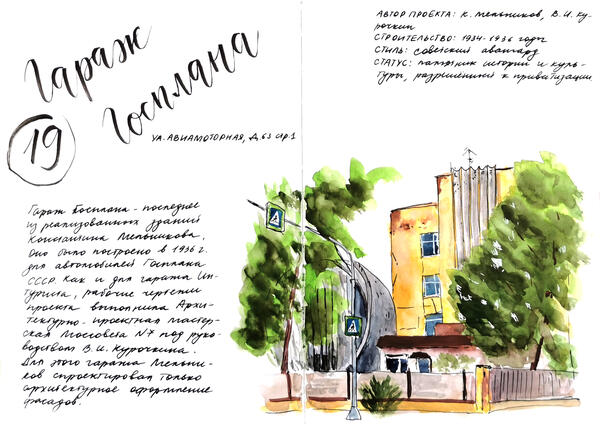 Гараж
Госплана
19
УЛ. АВИАМОТОРНАЯ, Д. 63 стр. 1
АВТОР ПРОЕКТА: К. Мельников, В.И. Ку-
рочкин
СТРОИТЕЛЬСТВО: 1934-1936 годы
СТИЛЬ: советский авангард
СТАТУС: памятник истории и куль-
туры, разрешенный к приватизации
Гараж Госплана - последнее
из реализованных зданий
Константина Мельникова.
Оно было построено в 1936 г.
для автомобилей Госплана
СССР. Как и для гаража Ин-
туриста, рабочие чертежи
проекта выполнила Архи-
тектурно-проектная мастер-
ская Моссовета №7 под руко-
водством В.И. Курочкина.
Для этого гаража Мельни-
ков спроектировал только
архитектурное оформление
фасадов.